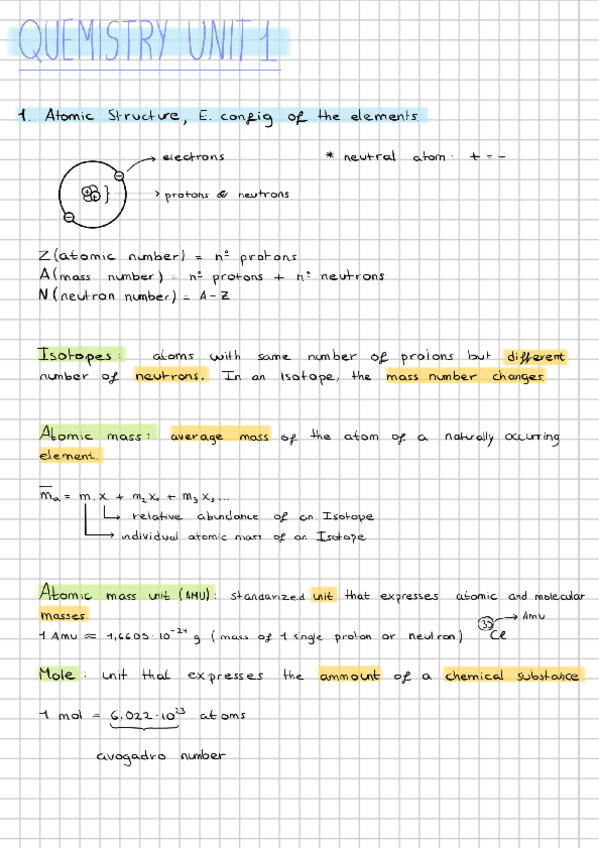 QUEMISTRY UNIT 1
1. Atomic Structure, E. config of the elements
electrons
* neutral atom: + = -
protons & neutrons
Z (atomic number) = nº protons
A (mass number) = nº protons + nº neutrons
N (neutron number) = A - Z
Isotopes: atoms with same number of protons but different
number of neutrons. In an Isotope, the mass number changes.
Atomic mass: average mass of the atom of a naturally occurring
element.
m̅a = m₁x₁ + m₂x₂ + m₃x₃...
relative abundance of an Isotope
individual atomic mass of an Isotope
Atomic mass unit (AMU): standarized unit that expresses atomic and molecular
masses.
35 Cl → Amu
1 Amu ≈ 1,6605·10⁻²⁴ g (mass of 1 single proton or neutron)
Mole: unit that expresses the ammount of a chemical substance
1 mol = 6,022·10²³ atoms
avogadro number